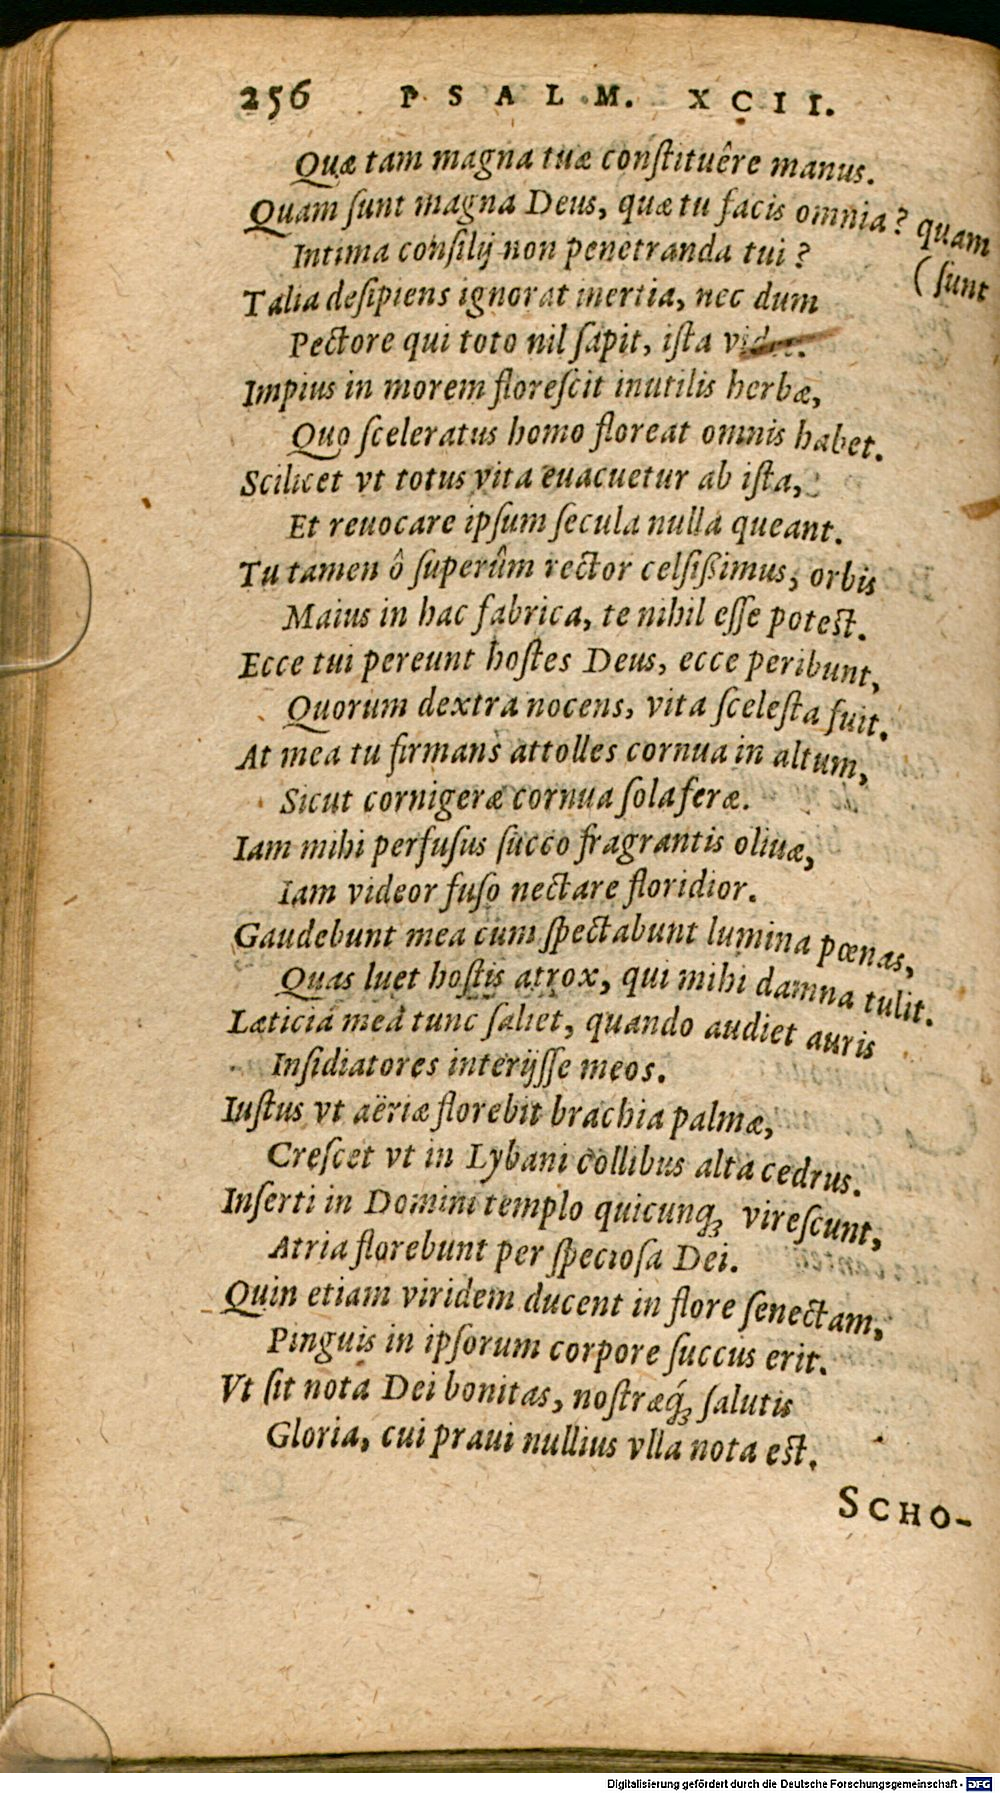 256 PSALM. XCII.
Quæ tam magna tuæ conſtituêre manus.
Quam ſunt magna Deus, quæ tu facis omnia? quam
(ſunt
Intima conſilij non penetranda tui?
Talia deſipiens ignorat inertia, nec dum
Pectore qui toto nil ſapit, iſta videt.
Impius in morem floreſcit inutilis herbæ,
Quo ſceleratus homo floreat omnis habet.
Scilicet vt totus vita euacuetur ab iſta,
Et reuocare ipſum ſecula nulla queant.
Tu tamen ô ſuperûm rector celſiſsimus, orbis
Maius in hac fabrica, te nihil eſſe poteſt.
Ecce tui pereunt hoſtes Deus, ecce peribunt,
Quorum dextra nocens, vita ſceleſta fuit.
At mea tu firmans attolles cornua in altum,
Sicut cornigeræ cornua ſola feræ.
Iam mihi perfuſus ſucco fragrantis oliuæ,
Iam videor fuſo nectare floridior.
Gaudebunt mea cùm ſpectabunt lumina pœnas,
Quas luet hoſtis atrox, qui mihi damna tulit.
Læticiâ meâ tunc ſaliet, quando audiet auris
Inſidiatores interijſſe meos.
Iuſtus vt aëriæ florebit brachia palmæ,
Creſcet vt in Lybani collibus alta cedrus.
Inſerti in Domini templo quicunq; vireſcunt,
Atria florebunt per ſpecioſa Dei.
Quin etiam viridem ducent in flore ſenectam,
Pinguis in ipſorum corpore ſuccus erit.
Vt ſit nota Dei bonitas, noſtræq́; ſalutis
Gloria, cui praui nullius vlla nota eſt.
SCHO-
Digitalisierung gefördert durch die Deutsche Forschungsgemeinschaft - DFG